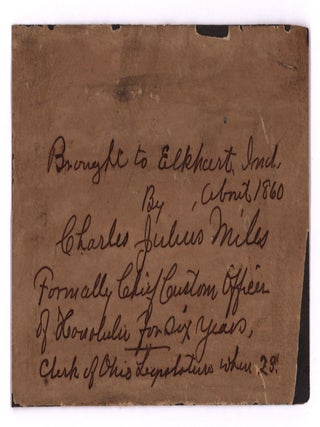 Brought to Elkhart, Ind.
By , About 1860
Charles Julius Miles
Formally Chief Custom Officer
of Honolulu for six years,
Clerk of Ohio Legislature when 28.